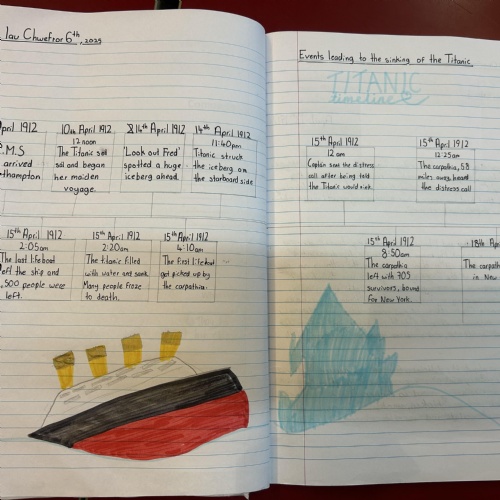 Iau Chwefror 6th, 2025
April 1912
M.S
arrived
thampton
10th April 1912
12noon
The Titanic set
sal and began
her maiden
voyage.
14th April 1912
'Look out Fred'
spotted a huge
iceberg ahead.
14th April 1912
11:40pm
Titanic struck
the iceberg on
the starboard side
15th April 1912
2:05am
The last lifeboat
left the ship and
,500 people were
left.
15th April 1912
2:20am
The titanic filled
with water and sank.
Many people froze
to death.
15th April 1912
4:10am
The first lifeboat
got picked up by
the carpathia.
Events leading to the sinking of the Titanic.
TITANIC
timeline
15th April 1912
12 am
Captain sent the distress
call after being told
the Titanic would sink.
15th April 1912
12:25am
The carpathia, 58
miles away, heard
the distress call
15th April 1912
8:50am
The carpathia
left with 705
survivors, bound
for New York.
18th Ap
The carpath
in New